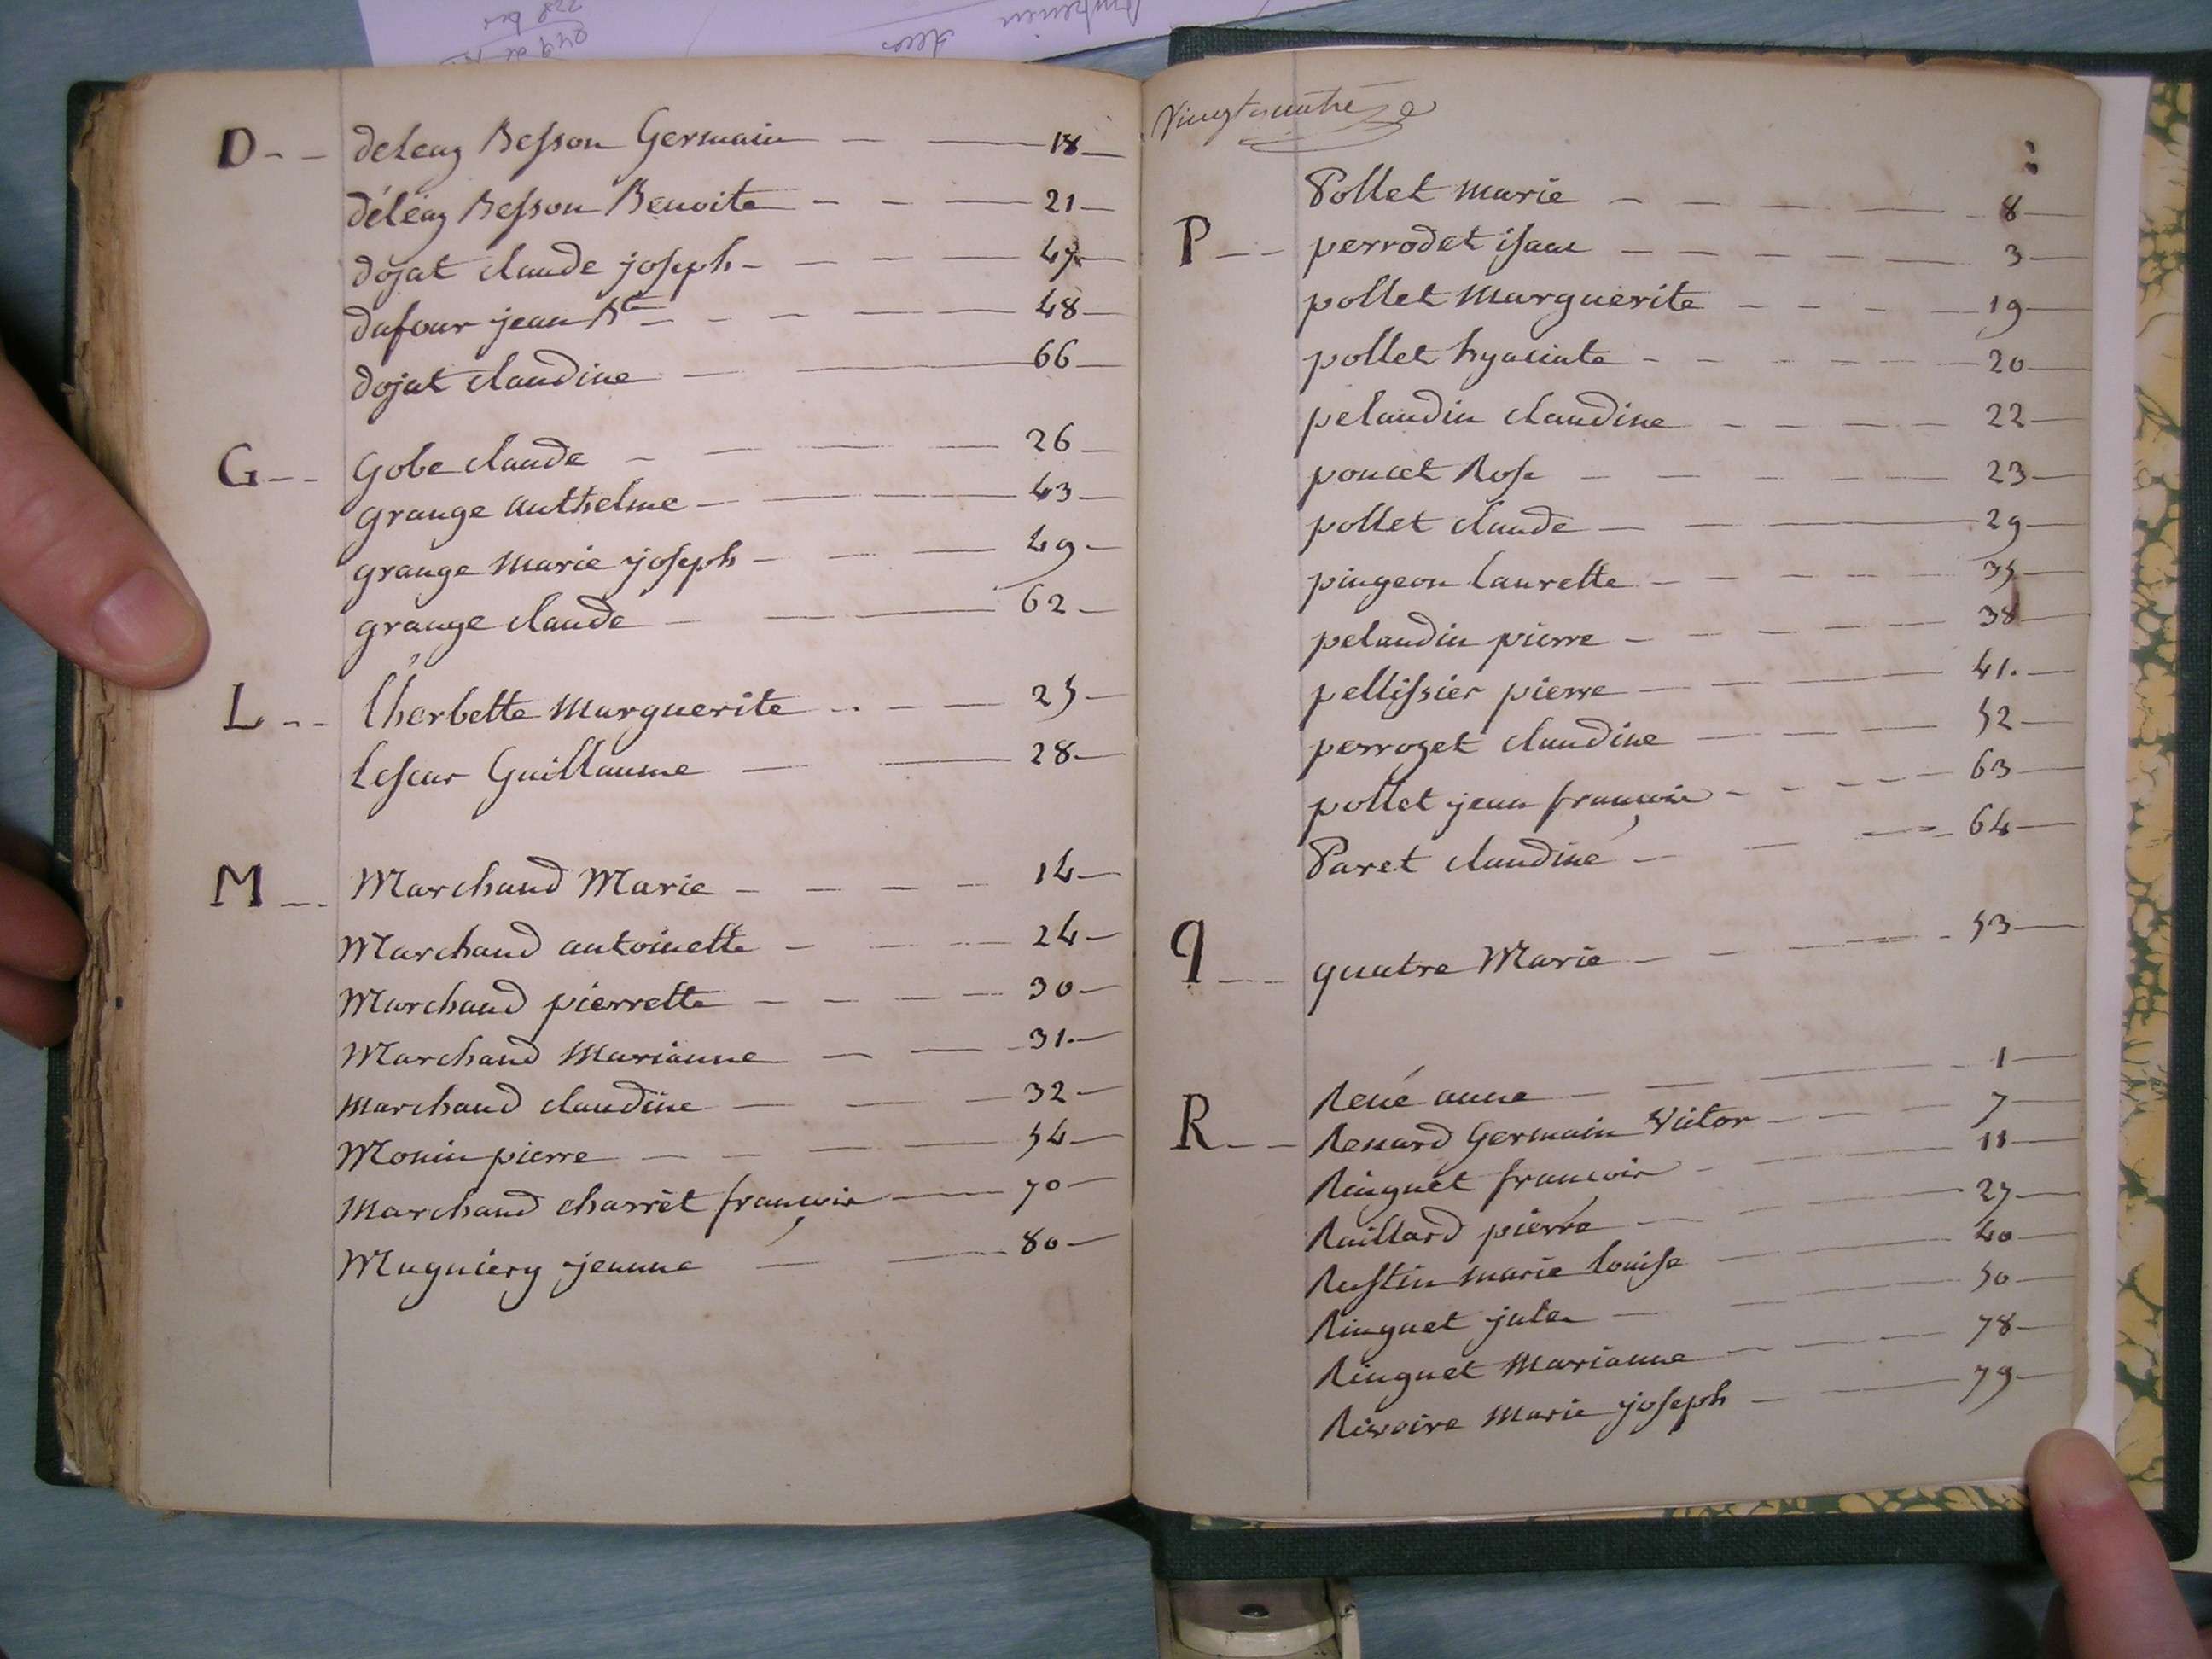 D -- deleaz Besson Germain — 18
déléaz Besson Benoite — 21
dojat claude joseph — 47
dufour jean Bte — 48
dojat claudine — 66
G -- Gobe claude — 26
grange anthelme — 43
grange marie joseph — 49
grange claude — 62
L -- lherbette marguerite — 25
Leseur Guillaume — 28
M -- Marchand Marie — 14
Marchand antoinette — 24
Marchand pierrette — 30
Marchand Marianne — 31
marchand claudine — 32
Monin pierre — 54
Marchand charrèt françois — 70
Mugniery jeanne — 80
Vingtquatre
Pollet marie — 8
P -- perrodet isaac — 3
pollet Marguerite — 19
pollet hyacinte — 20
pelaudin claudine — 22
poncet Rose — 23
pollet claude — 29
pingeon laurette — 35
pelaudin pierre — 38
pellissier pierre — 41.
perrozet claudine — 52
pollet jean françois — 63
Paret claudine — 64
q -- quatre Marie — 53
René anne — 1
R -- Renard Germain Victor — 7
Ringuet francois — 11
Raillard pierre — 27
Rustin marie louise — 40
Ringuet jules — 50
Ringuet Marianne — 78
Rivoire Marie joseph — 79